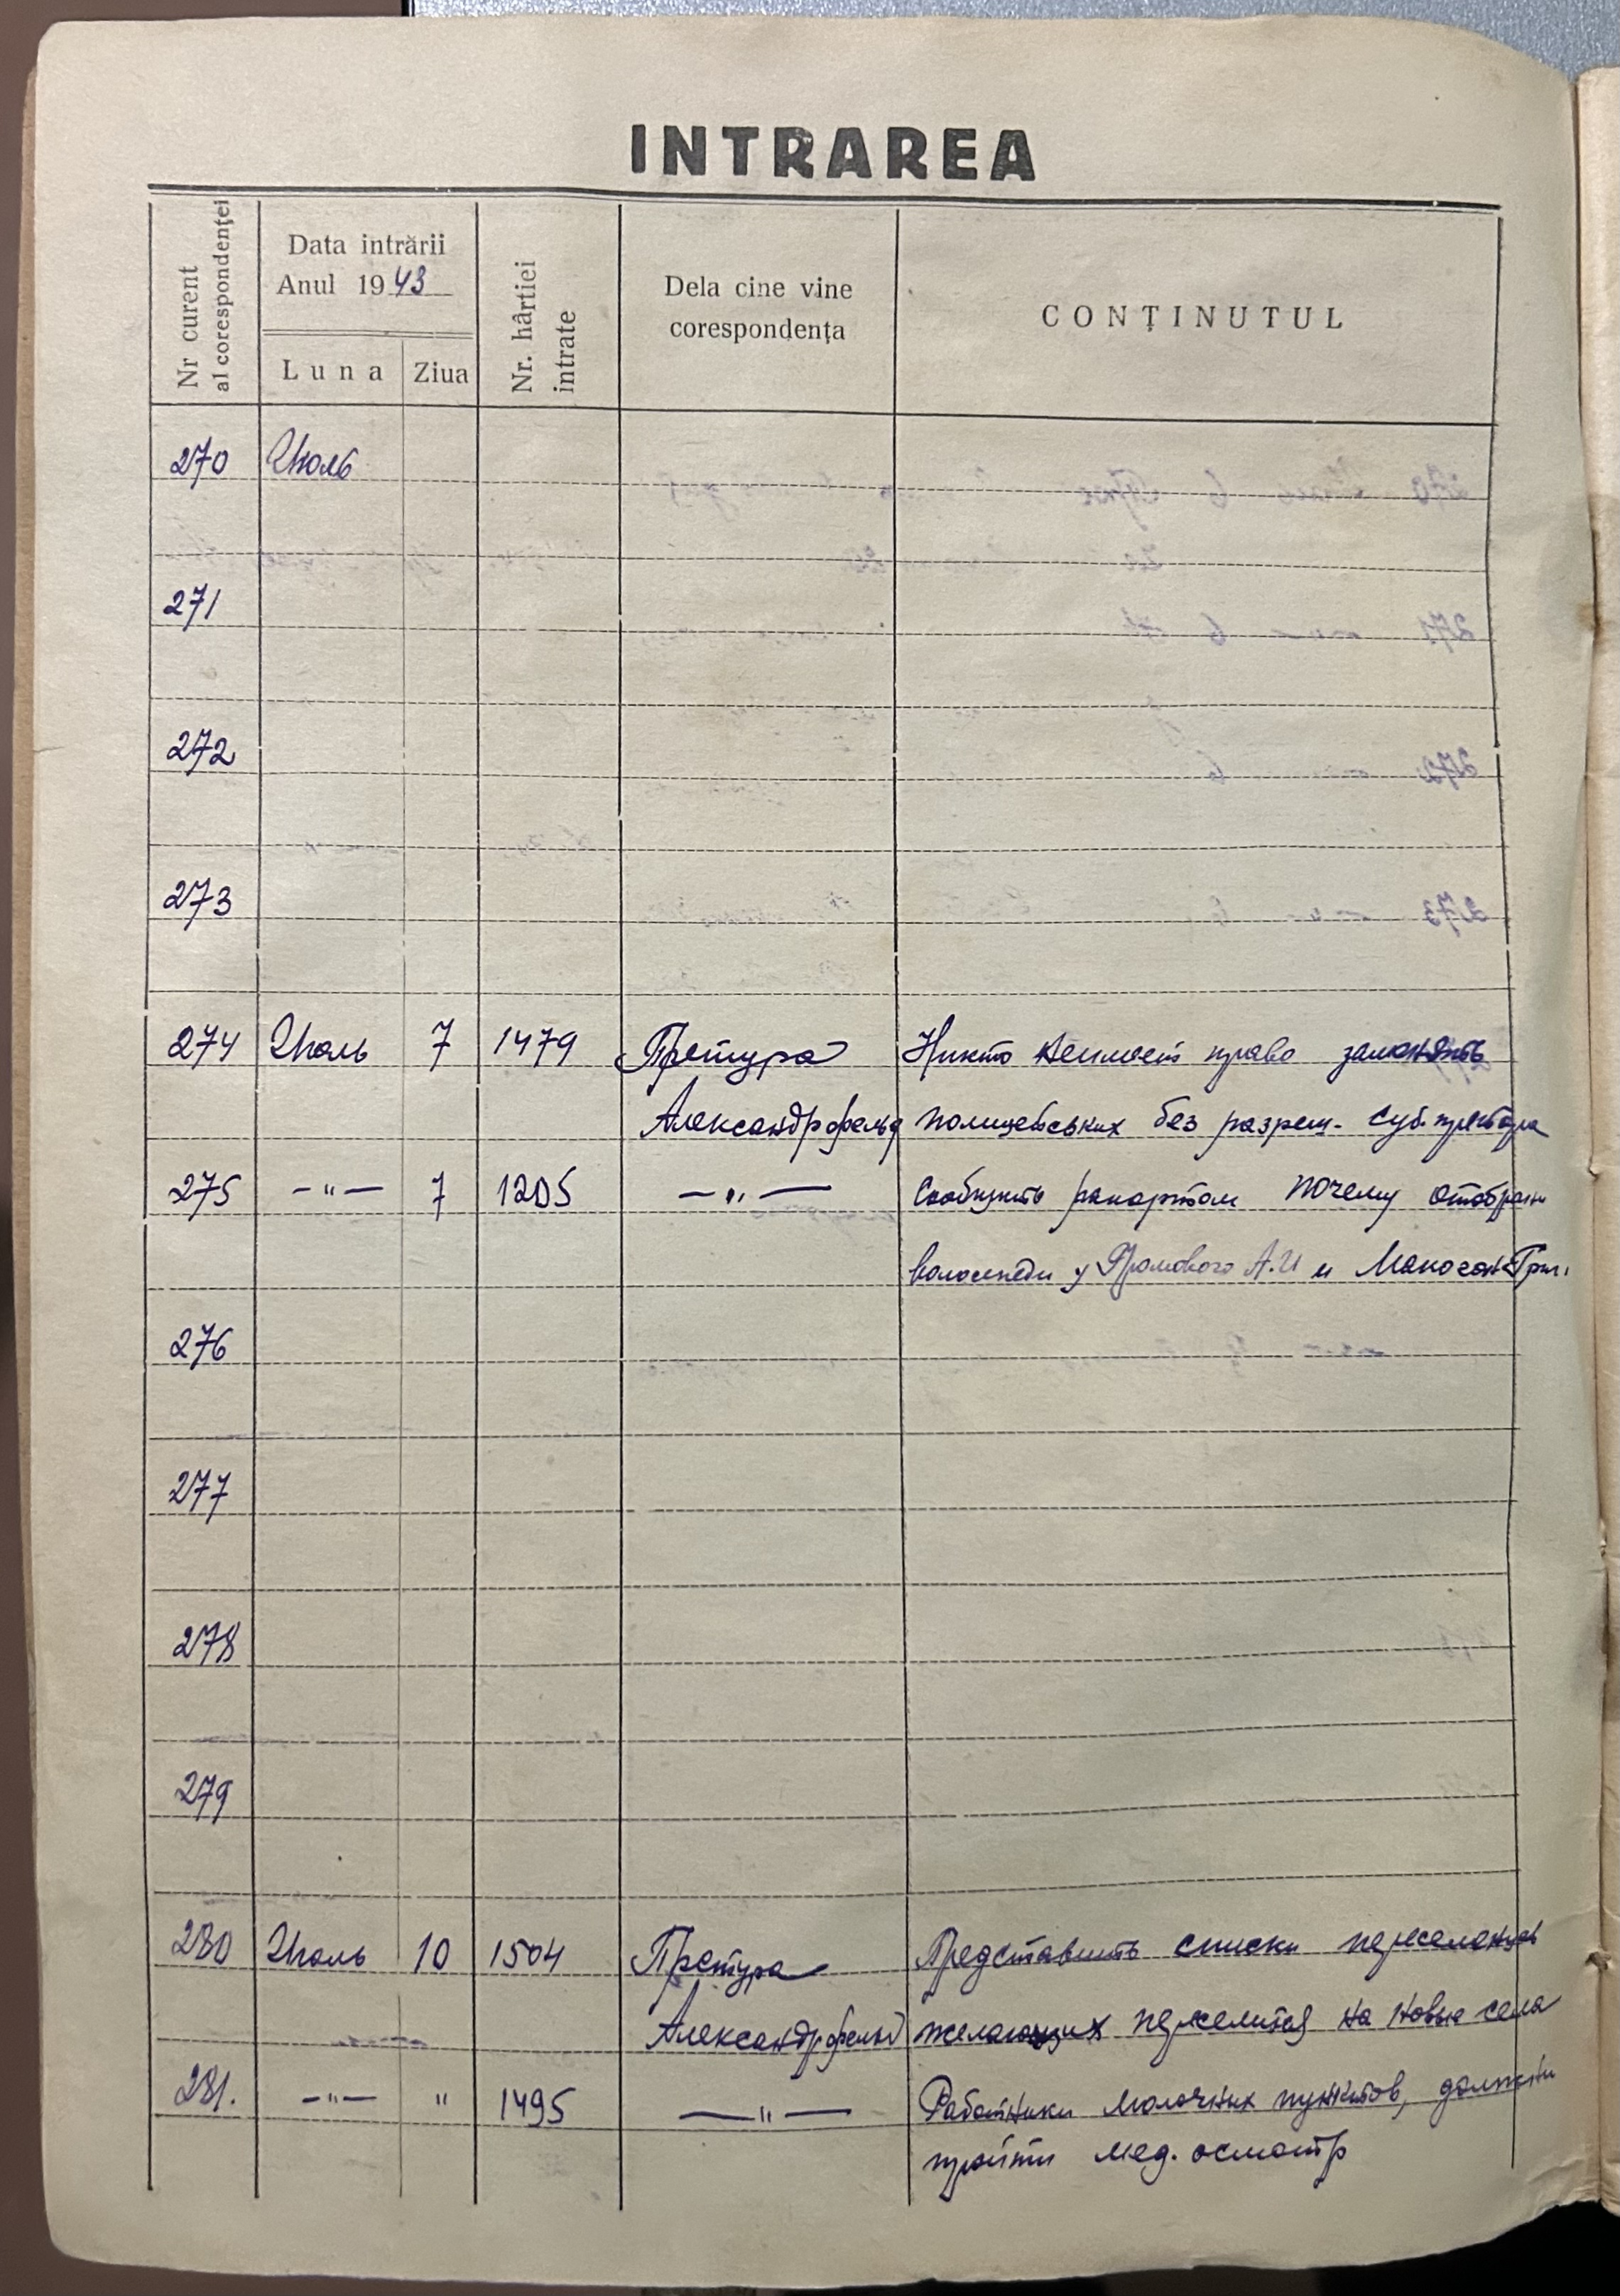 INTRAREA
Nr curent al corespondenței
Data intrării
Anul 1943
Luna Ziua
Nr. hârtiei intrate
Dela cine vine corespondența
CONȚINUTUL
270 Июль
271
272
273
274 Июль 7 1479 Претура Никто неимеет право заменять
Александрфельд полицейських без разреш. Суб.претора
275 —"— 7 1205 —"— Сообщить рапортом почему отобран
волосипеди у Громового А.И и Маноган Григ.
276
277
278
279
280 Июль 10 1504 Претура Представить списки переселенцев
Александрфельд желающих переселится на новые села
281. —"— " 1495 —"— Работники молочних пунктов, должни
пройти мед. осмотр